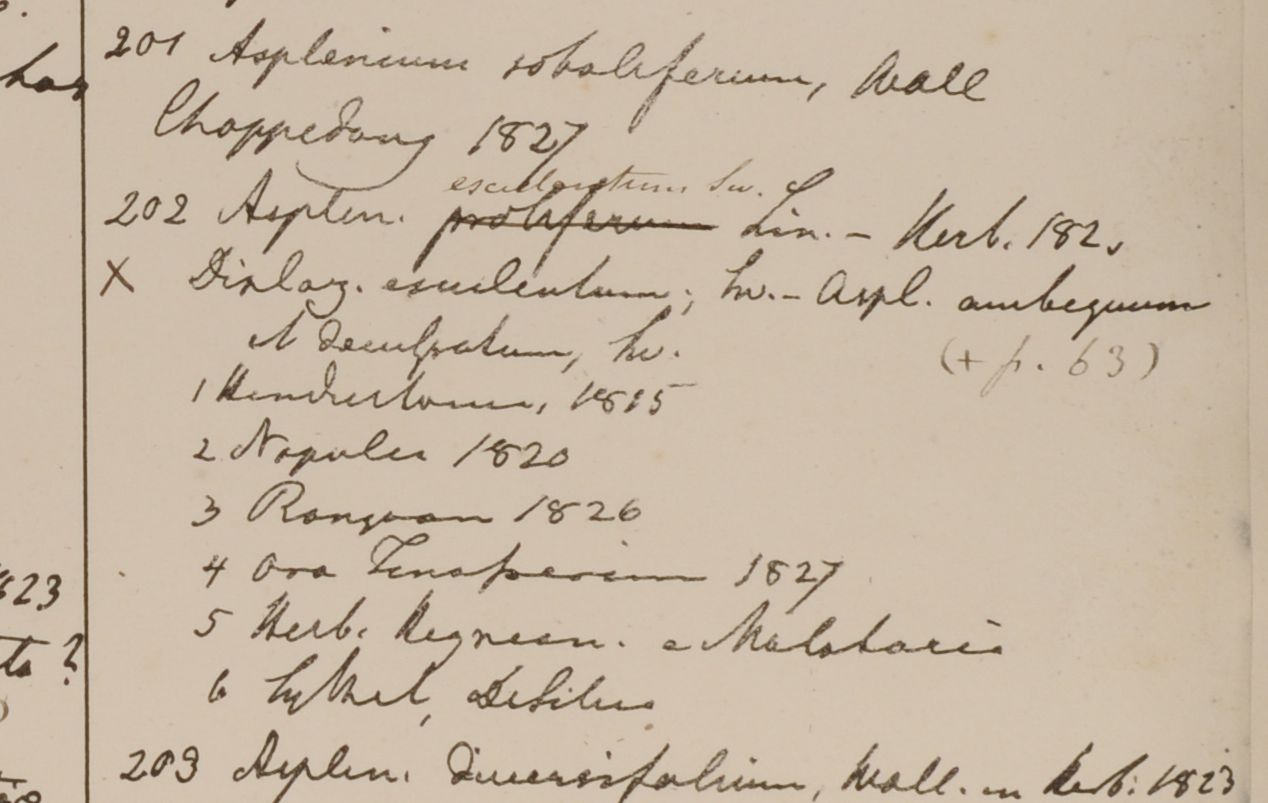 201 Asplenium soboliferum, Wall
Choppedong 1827
esculentum Sw.
202 Asplen. proliferum Lin. - Herb. 182
X Diplaz. esculentum; Sw. - Aspl. ambiguum
et decussatum, Sw.
(+ p. 63)
1 1815
2 Napalia 1820
3 Rangoon 1826
4 Ora Tenasserim 1827
5 Herb. Heynean. e Malabaria
6 Sylhet, DeSilva
203 Asplen. diversifolium, Wall. in Herb: 1823
823
ta?